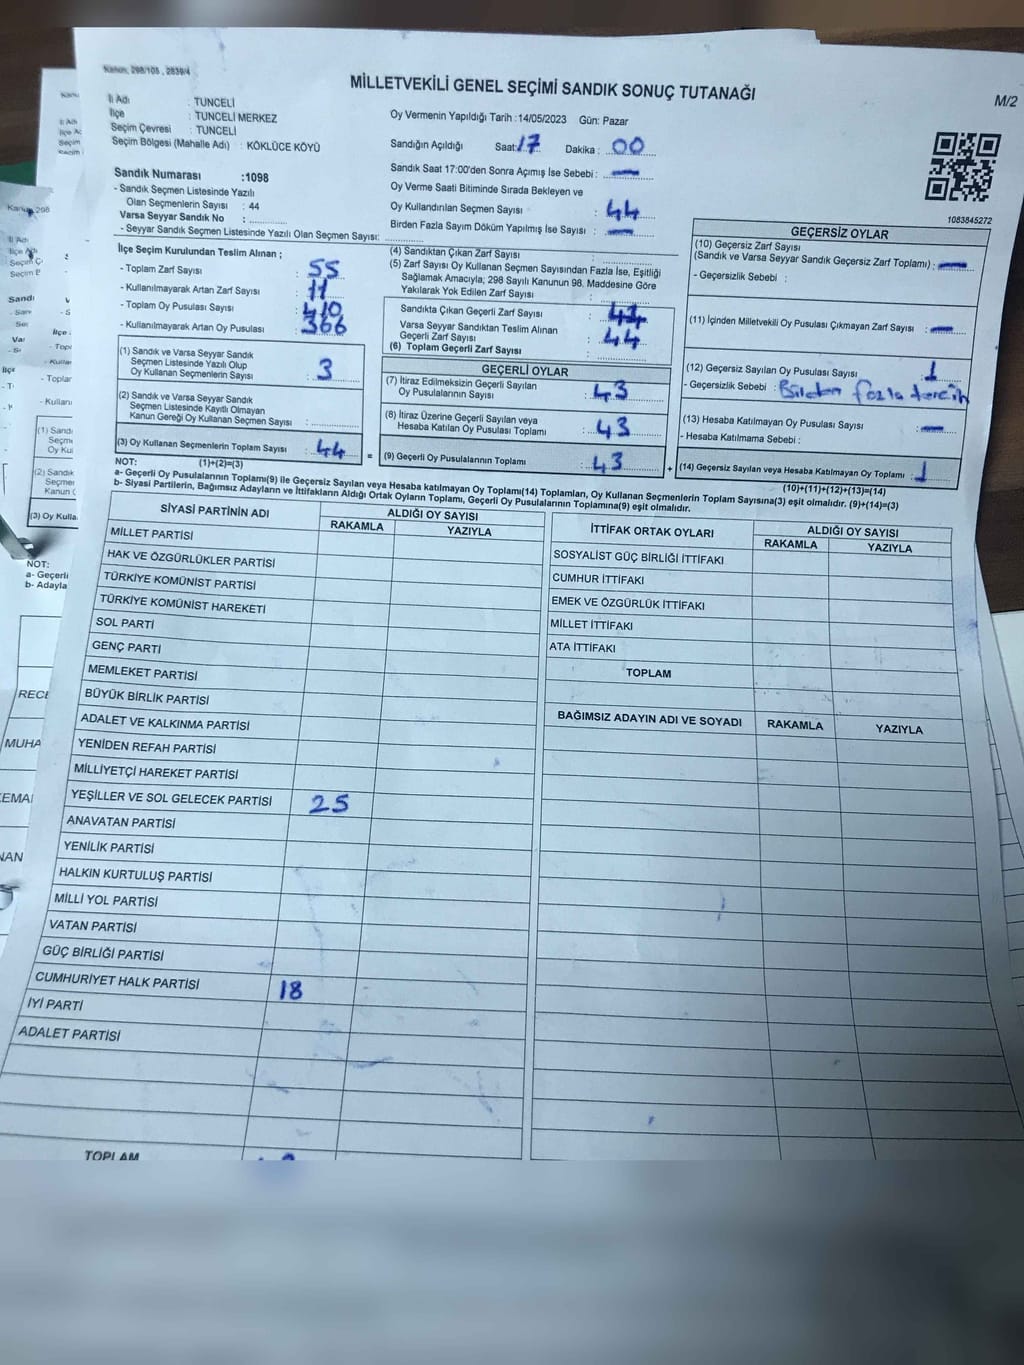 Kanun; 298/105 , 2839/4
MİLLETVEKİLİ GENEL SEÇİMİ SANDIK SONUÇ TUTANAĞI
M/2
İl Adı : TUNCELİ
İlçe : TUNCELİ MERKEZ
Seçim Çevresi : TUNCELİ
Seçim Bölgesi (Mahalle Adı) : KÖKLÜCE KÖYÜ
Sandık Numarası :1098
- Sandık Seçmen Listesinde Yazılı
Olan Seçmenlerin Sayısı : 44
Varsa Seyyar Sandık No :
- Seyyar Sandık Seçmen Listesinde Yazılı Olan Seçmen Sayısı:
Oy Vermenin Yapıldığı Tarih :14/05/2023 Gün: Pazar
Sandığın Açıldığı Saat: 17 Dakika : 00
Sandık Saat 17:00'den Sonra Açımış İse Sebebi : —
Oy Verme Saati Bitiminde Sırada Bekleyen ve
Oy Kullandırılan Seçmen Sayısı : 44
Birden Fazla Sayım Döküm Yapılmış İse Sayısı : —
1083845272
İlçe Seçim Kurulundan Teslim Alınan ;
- Toplam Zarf Sayısı : 55
- Kullanılmayarak Artan Zarf Sayısı : 11
- Toplam Oy Pusulası Sayısı : 410
- Kullanılmayarak Artan Oy Pusulası : 366
(1) Sandık ve Varsa Seyyar Sandık
Seçmen Listesinde Yazılı Olup
Oy Kullanan Seçmenlerin Sayısı : 3
(2) Sandık ve Varsa Seyyar Sandık
Seçmen Listesinde Kayıtlı Olmayan
Kanun Gereği Oy Kullanan Seçmen Sayısı :
(3) Oy Kullanan Seçmenlerin Toplam Sayısı : 44
(4) Sandıktan Çıkan Zarf Sayısı :
(5) Zarf Sayısı Oy Kullanan Seçmen Sayısından Fazla İse, Eşitliği
Sağlamak Amacıyla; 298 Sayılı Kanunun 98. Maddesine Göre
Yakılarak Yok Edilen Zarf Sayısı :
Sandıkta Çıkan Geçerli Zarf Sayısı :
Varsa Seyyar Sandıktan Teslim Alınan
Geçerli Zarf Sayısı : 44
(6) Toplam Geçerli Zarf Sayısı :
GEÇERLİ OYLAR
(7) İtiraz Edilmeksizin Geçerli Sayılan
Oy Pusulalarının Sayısı : 43
(8) İtiraz Üzerine Geçerli Sayılan veya
Hesaba Katılan Oy Pusulası Toplamı : 43
= (9) Geçerli Oy Pusulalarının Toplamı : 43
GEÇERSİZ OYLAR
(10) Geçersiz Zarf Sayısı
(Sandık ve Varsa Seyyar Sandık Geçersiz Zarf Toplamı) : —
- Geçersizlik Sebebi :
(11) İçinden Milletvekili Oy Pusulası Çıkmayan Zarf Sayısı : —
(12) Geçersiz Sayılan Oy Pusulası Sayısı : 1
- Geçersizlik Sebebi : Birden fazla tercih
(13) Hesaba Katılmayan Oy Pusulası Sayısı : —
- Hesaba Katılmama Sebebi :
+ (14) Geçersiz Sayılan veya Hesaba Katılmayan Oy Toplamı : 1
NOT: (1)+(2)=(3)
(10)+(11)+(12)+(13)=(14)
a- Geçerli Oy Pusulalarının Toplamı(9) ile Geçersiz Sayılan veya Hesaba katılmayan Oy Toplamı(14) Toplamları, Oy Kullanan Seçmenlerin Toplam Sayısına(3) eşit olmalıdır. (9)+(14)=(3)
b- Siyasi Partilerin, Bağımsız Adayların ve İttifakların Aldığı Ortak Oyların Toplamı, Geçerli Oy Pusulalarının Toplamına(9) eşit olmalıdır.
SİYASİ PARTİNİN ADI ALDIĞI OY SAYISI
RAKAMLA YAZIYLA
MİLLET PARTİSİ
HAK VE ÖZGÜRLÜKLER PARTİSİ
TÜRKİYE KOMÜNİST PARTİSİ
TÜRKİYE KOMÜNİST HAREKETİ
SOL PARTİ
GENÇ PARTİ
MEMLEKET PARTİSİ
BÜYÜK BİRLİK PARTİSİ
ADALET VE KALKINMA PARTİSİ
YENİDEN REFAH PARTİSİ
MİLLİYETÇİ HAREKET PARTİSİ
YEŞİLLER VE SOL GELECEK PARTİSİ 25
ANAVATAN PARTİSİ
YENİLİK PARTİSİ
HALKIN KURTULUŞ PARTİSİ
MİLLİ YOL PARTİSİ
VATAN PARTİSİ
GÜÇ BİRLİĞİ PARTİSİ
CUMHURİYET HALK PARTİSİ 18
İYİ PARTİ
ADALET PARTİSİ
TOPLAM
İTTİFAK ORTAK OYLARI ALDIĞI OY SAYISI
RAKAMLA YAZIYLA
SOSYALİST GÜÇ BİRLİĞİ İTTİFAKI
CUMHUR İTTİFAKI
EMEK VE ÖZGÜRLÜK İTTİFAKI
MİLLET İTTİFAKI
ATA İTTİFAKI
TOPLAM
BAĞIMSIZ ADAYIN ADI VE SOYADI RAKAMLA YAZIYLA